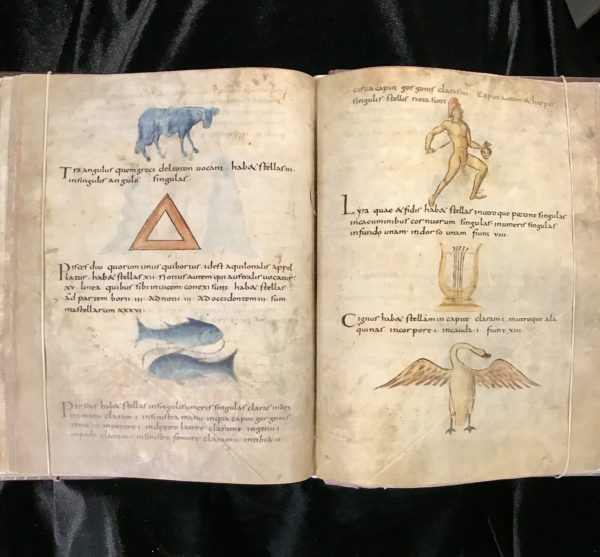 Triangulus quem greci deltoton uocant · habet stellas iii ·
in singulis angulis singulas.
Pisces duo quorum unus quiborius · id est aquilonalis appel
latur · habet stellas xii · Notius autem qui australis uocatur
xv · linea quibus sibi inuicem conexi sunt · habet stellas
ad partem borii · iii · ad notii · iii · ad occidentem iii · sum
ma stellarum xxxvi ·
Perseus habet stellas in singulis umeris singulas claras · in dex
tra manu claram · i · in sinistra manu in qua caput gorgonis
tenet · iii · in uentre · i · in dextro latere claram · i · in genu · i ·
in pede claram · i · in sinistro femore claram · i · in tibia ii ·
circa caput gorgonis claras iii · Caput autem &
singulis stellis nota sunt
Lyra quae & fidis habet stellas in utroque pectine singulas
in cacuminibus cornuorum singulas · in umeris singulas
in fundo unam · in dorso unam · fiunt viii ·
Cignus habet stellam in capite claram · i · in utroque ala
quinas · in corpore · i · in cauda · i · fiunt xiii ·